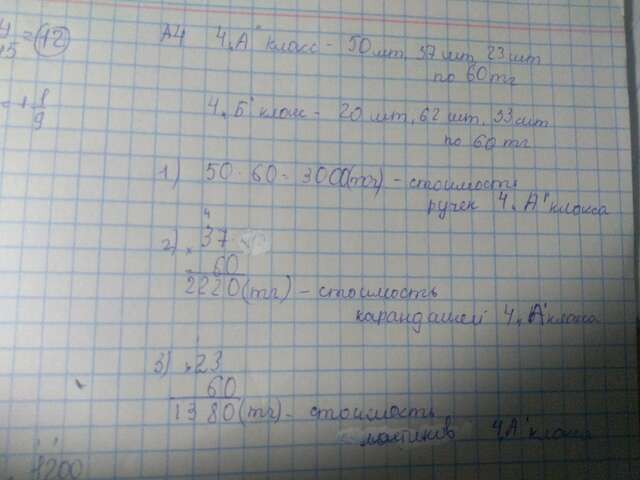 4/15 = 12
А4 4„А" класс - 50 шт, 37 шт, 23 шт
по 60 тг
= 1 1/9
4„Б" класс - 20 шт, 62 шт, 33 шт
по 60 тг
1) 50 · 60 = 3000(тг) - стоимость
ручек 4„А" класса
4
2) × 37
60
2220(тг) - стоимость
карандашей 4„А" класса
1
3) × 23
60
1380(тг) - стоимость
ластиков 4„А" класса
1200